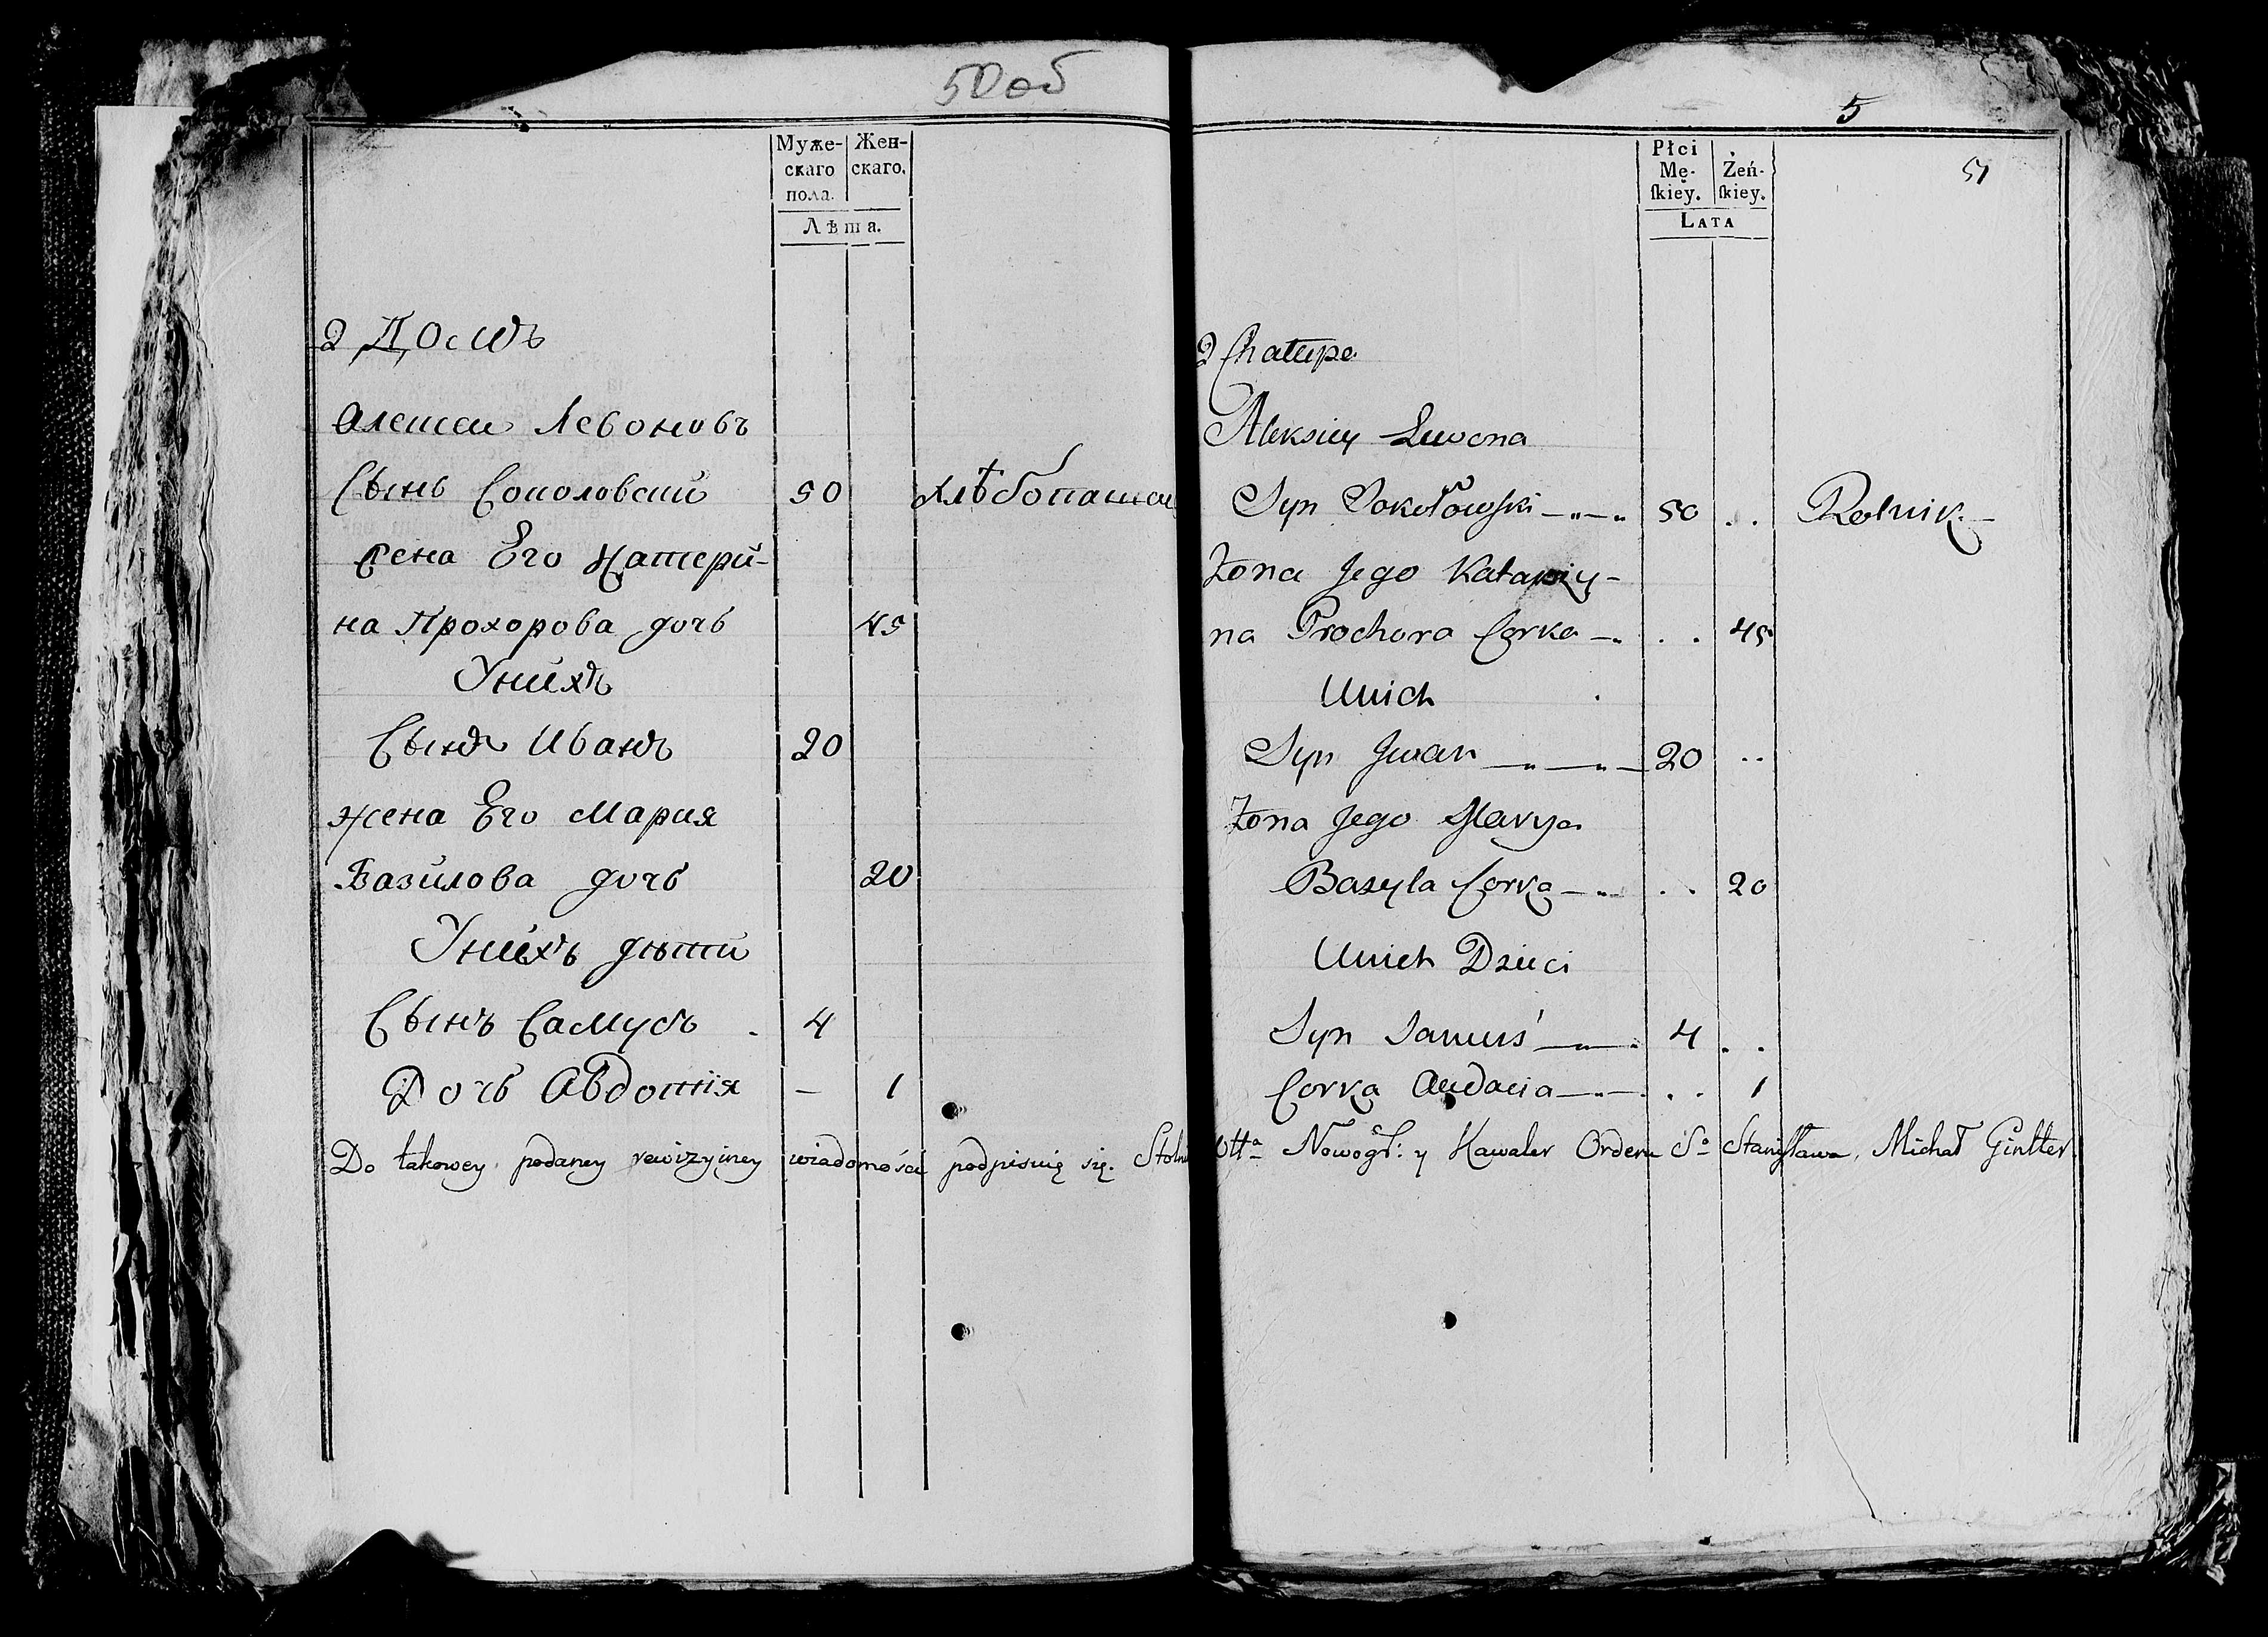 50 об
Муже-
скаго
пола.
Жен-
скаго.
Лѣта.
2 Домъ
Алексей Левоновъ
Сынъ Соколовский 50 хлѣбопашец
жена Его Катери-
на Прохорова дочь 45
Унихъ
Сынъ Иванъ 20
жена Его Мария
Базилова дочь 20
Унихъ дѣти
Сынъ Самусь 4
Дочь Авдотия — 1
5
51
Płci
Mę-
skiey.
Żeń-
skiey.
Lata
2 Chałupa
Aleksiey Lewona
Syn Sokołowski 50 .. Rolnik
Żona Jego Katarzy-
na Prochora Corka .. 45
Unich
Syn Jwan 20 ..
Żona Jego Marya
Bazyla Corka .. 20
Unich Dzieci
Syn Samuś 4 ..
Corka Audocia .. 1
Do takowey podaney rewizyiney wiadomości podpisuię się. Stolnik Wttа Nowogł: y Kawaler Orderu Sо Stanisława, Michał Gintter.